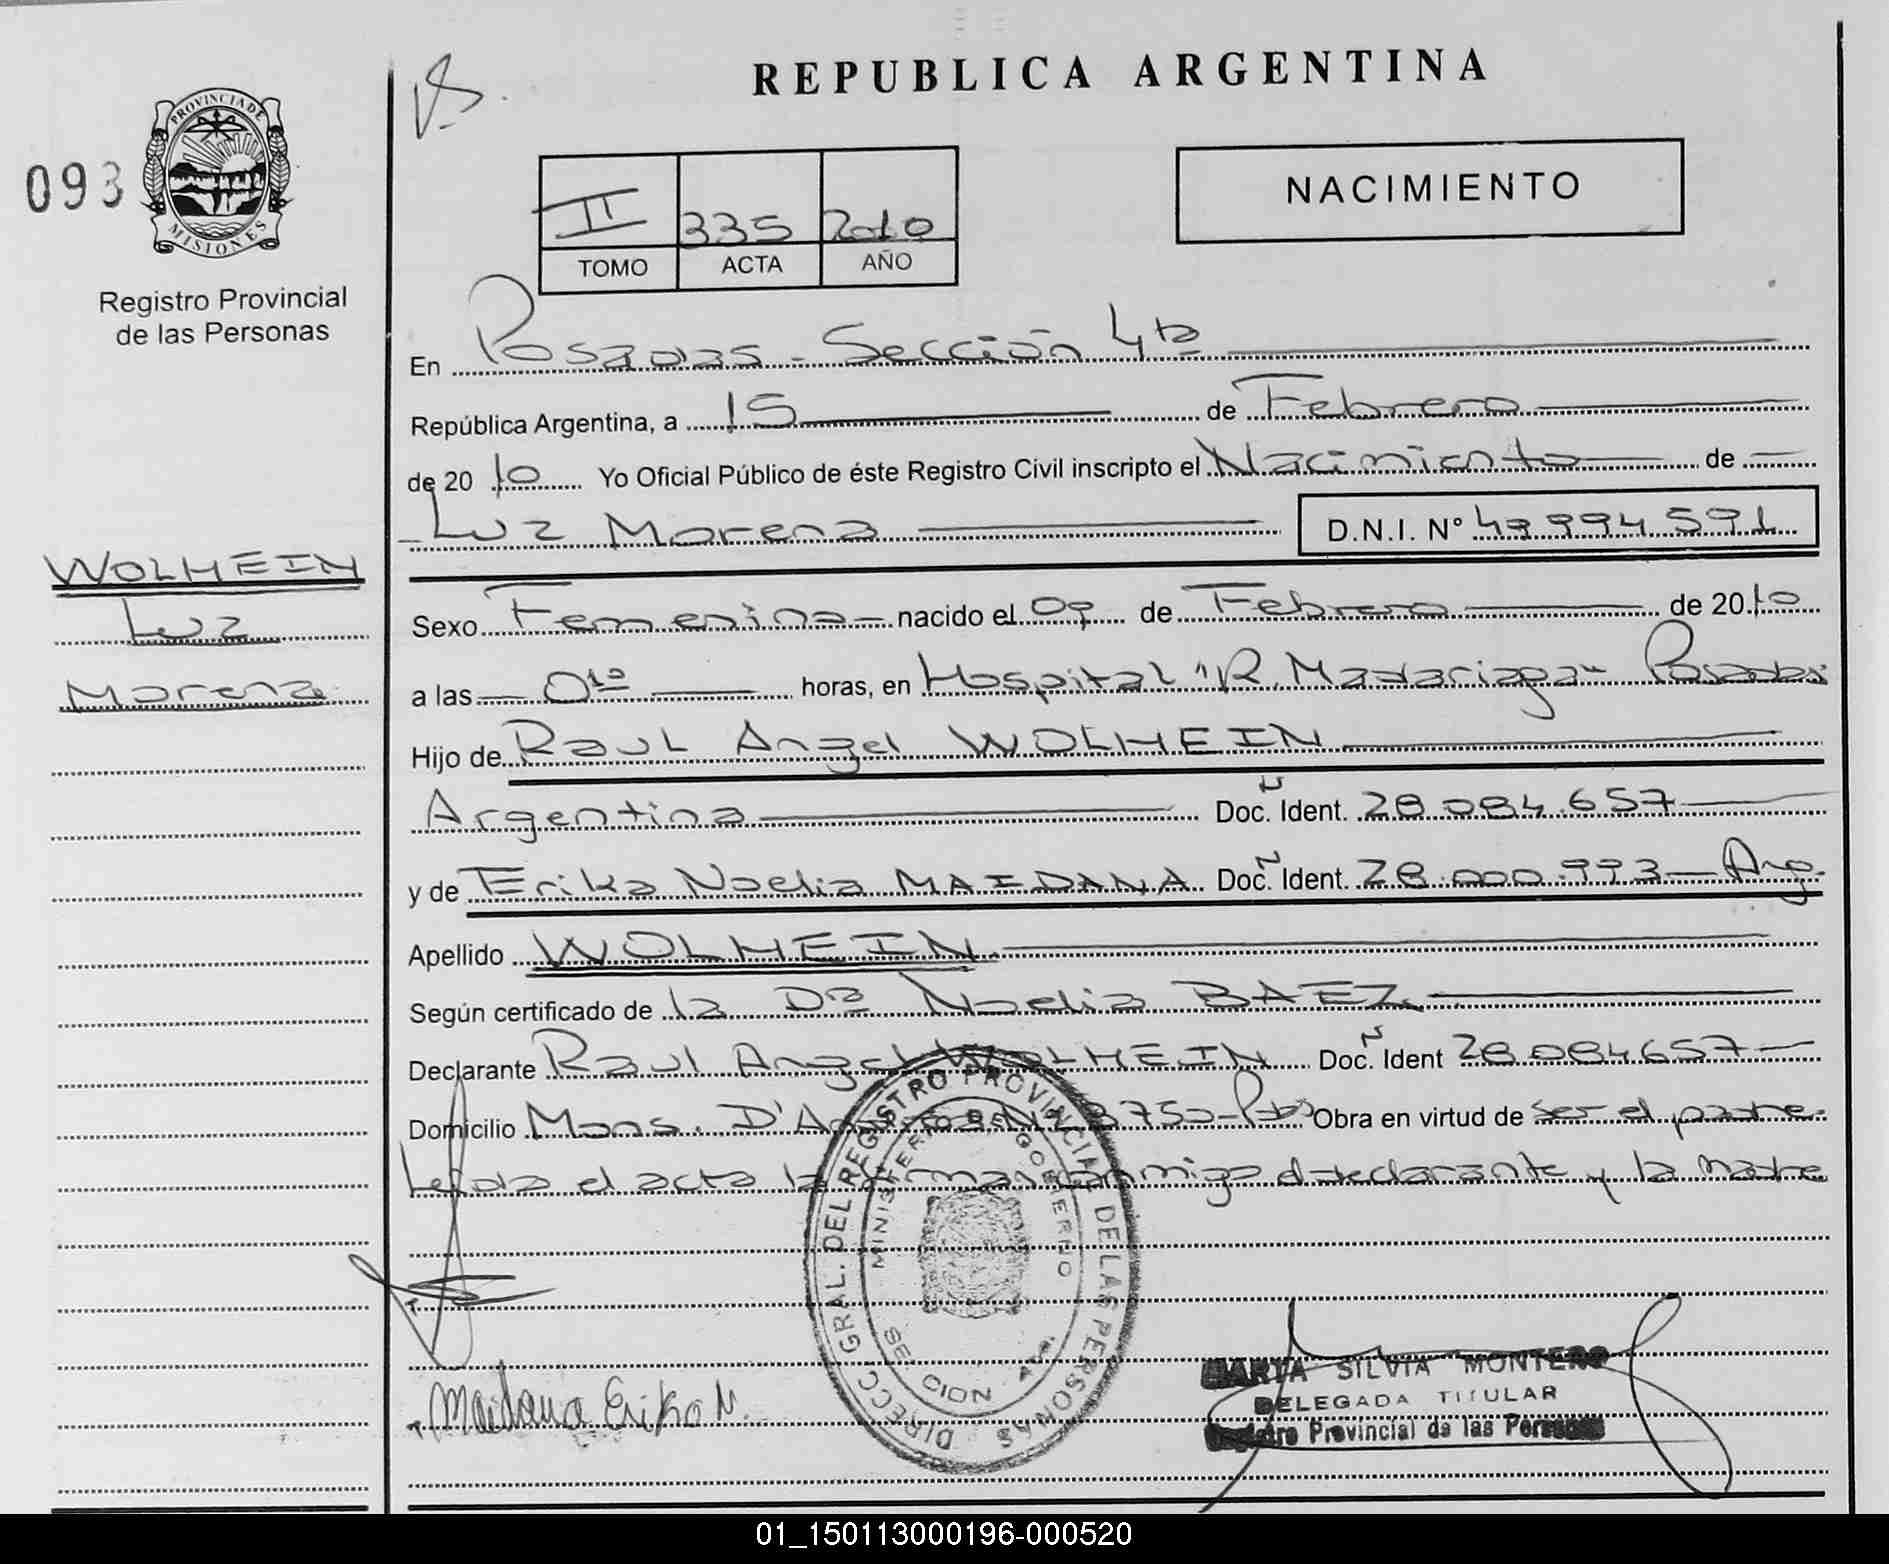 REPUBLICA ARGENTINA
093
PROVINCIA DE
MISIONES
Registro Provincial
de las Personas
II 335 2010
TOMO ACTA AÑO
NACIMIENTO
En Posadas - Sección 4ta
República Argentina, a 15 de Febrero
de 2010 Yo Oficial Público de éste Registro Civil inscripto el Nacimiento de
Luz Morena D.N.I. N° 49.994.591
WOLHEIN
Luz
Morena
Sexo Femenina nacido el 09 de Febrero de 2010
a las 01º horas, en Hospital "R. Madariaga" Posadas
Hijo de Raul Angel WOLHEIN
Argentina Doc. Ident. 28.084.657
y de Erika Noelia MAIDANA Doc. Ident. 28.000.993 - Arg.
Apellido WOLHEIN
Según certificado de la Dra Noelia BAEZ
Declarante Raul Angel WOLHEIN Doc. Ident 28.084.657
Domicilio Mons. 3750 Obra en virtud de ser el padre.
Leida el acta la firman conmigo el declarante y la madre
DIRECC GRAL. DEL REGISTRO PROVINCIAL DE LAS PERSONAS
MINISTERIO DE GOBIERNO
SECCION 4ta.
Maidana Erika N.
MARTA SILVIA MONTERO
DELEGADA TITULAR
Registro Provincial de las Personas
01_150113000196-000520